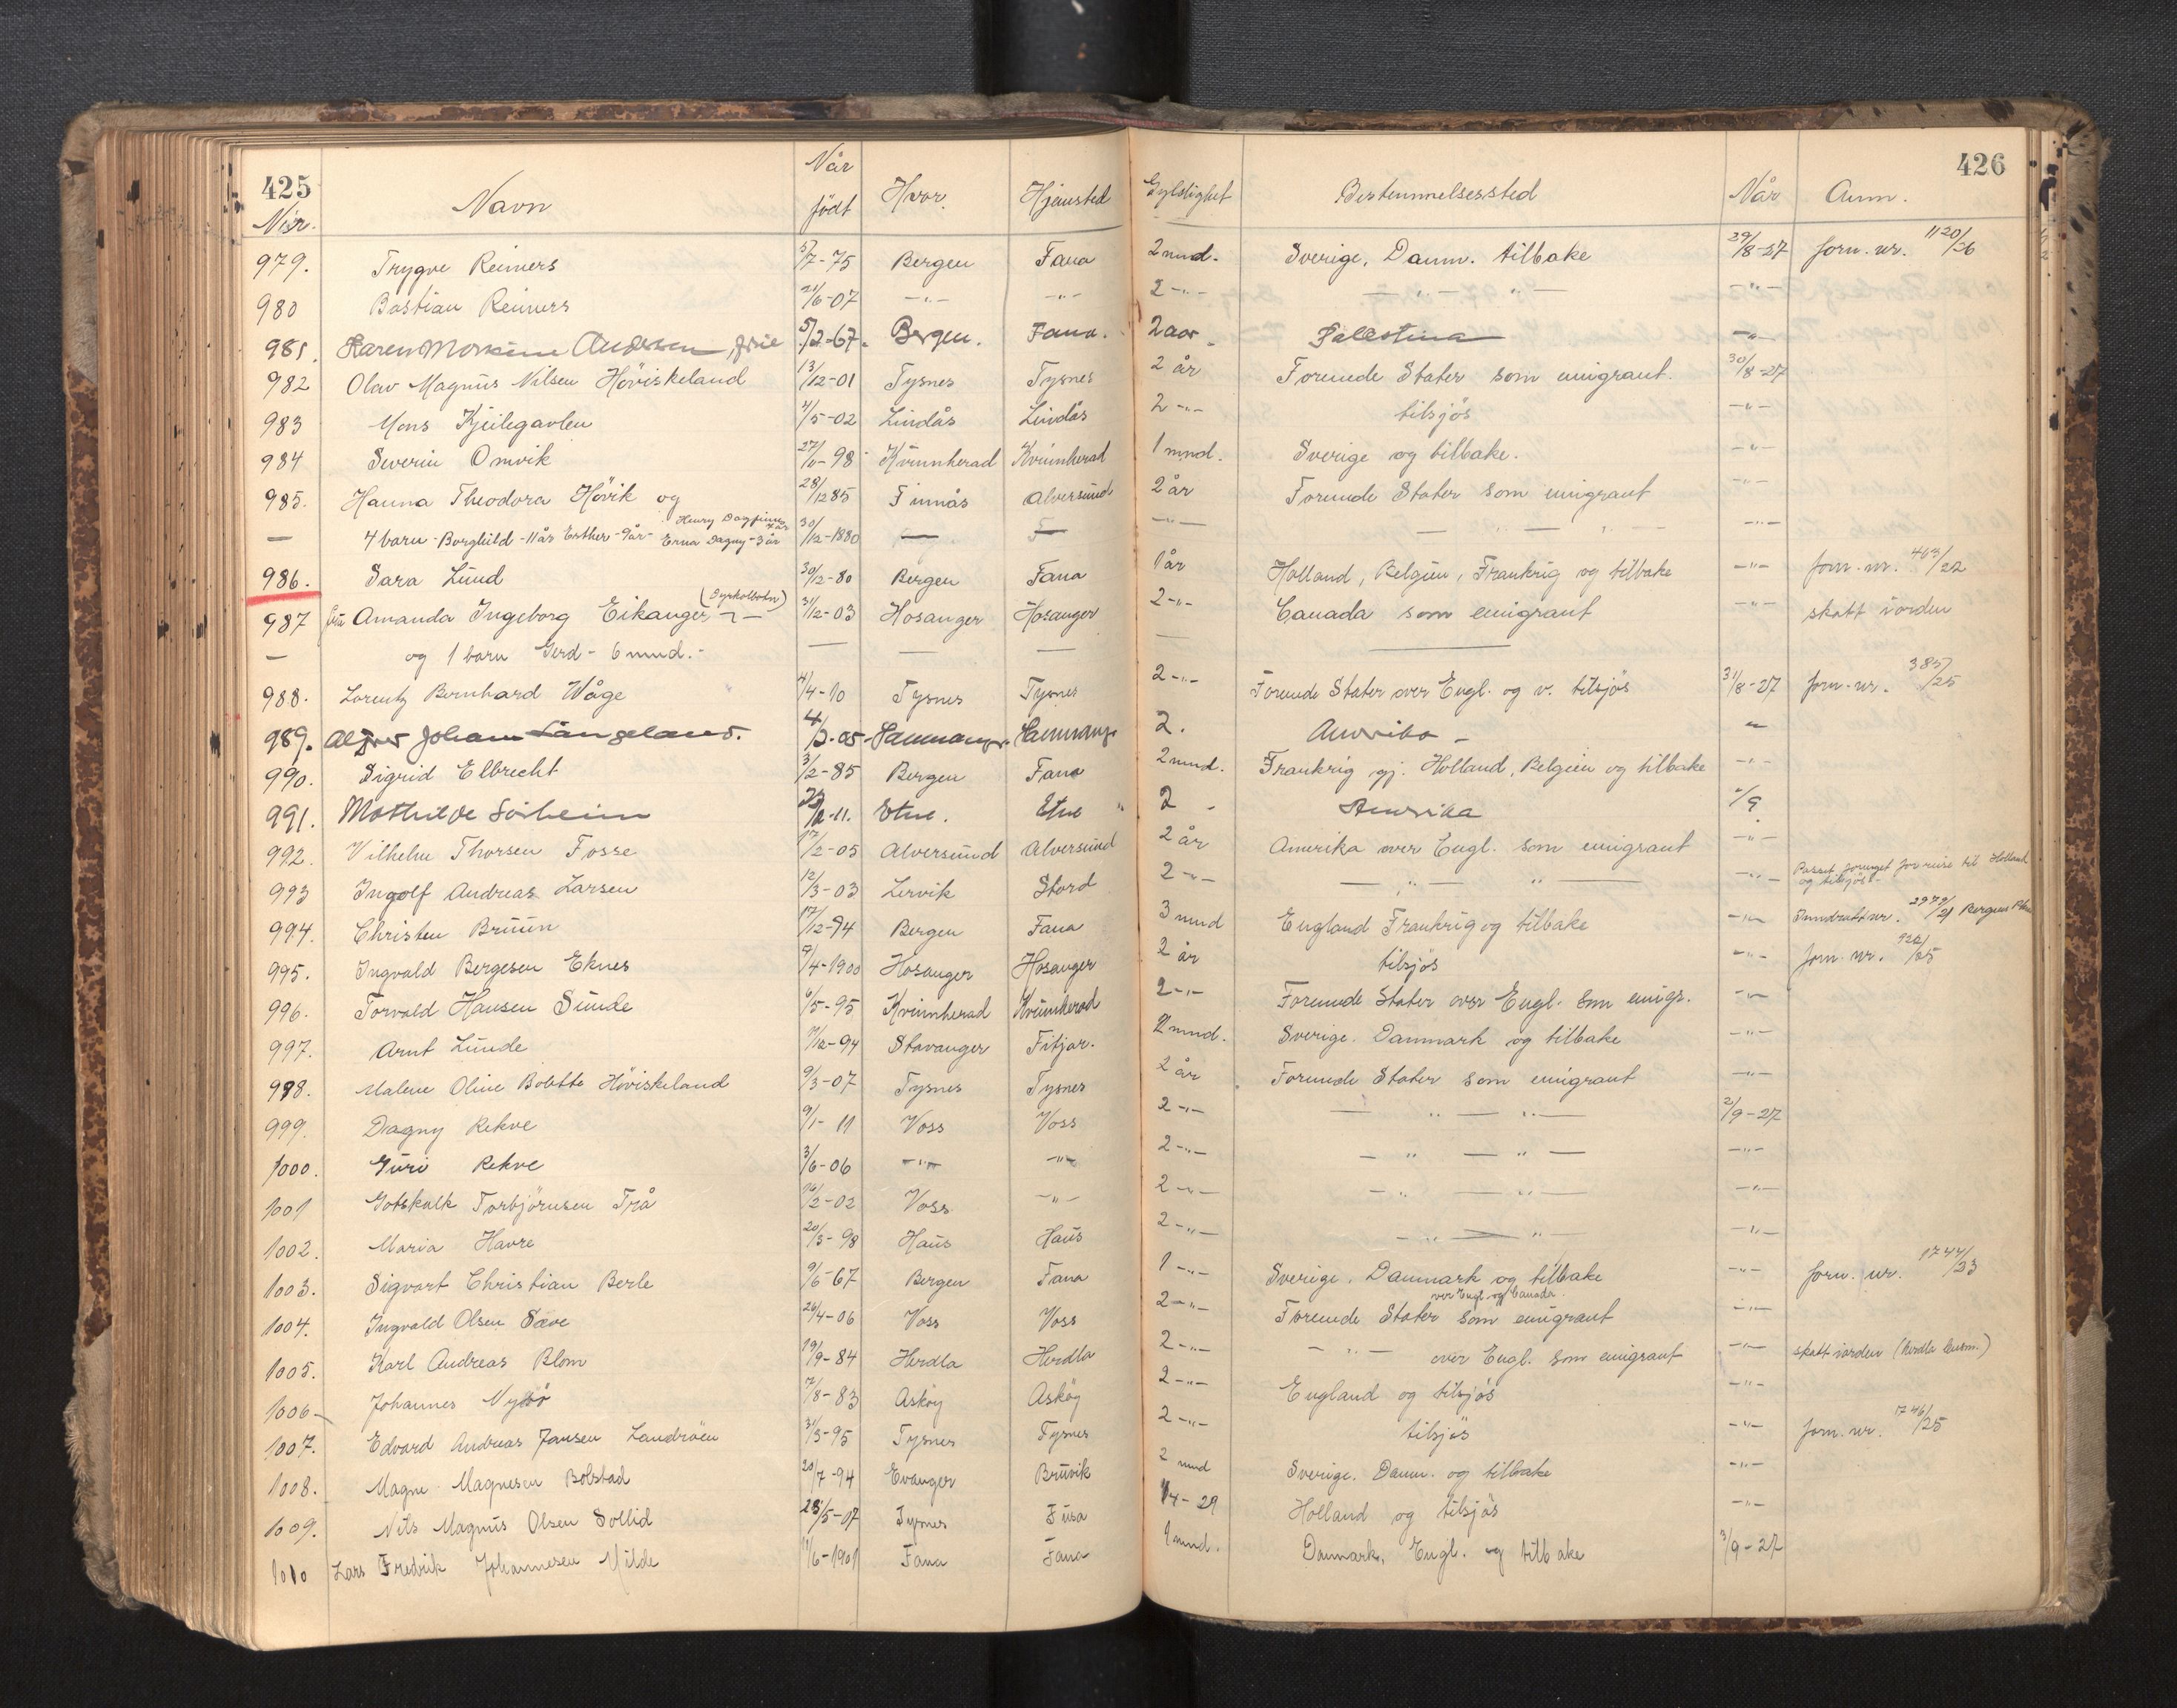 425
426
Nr. Navn Når födt Hvor. Hjemsted Gyldighet Bestemmelsessted Når Anm.
979. Trygve Reimers 5/7-75 Bergen Fana 2 mnd. Sverige, Danm. tilbake 29/8-27 forn. nr. 1120/26
980 Bastian Reimers 21/6-07 -"- -"- 2 -"- -"- "- -"-
981. Karen Andersen, frue 5/2-67. Bergen. Fana. 2 aar. Palestina -"-
982 Olav Magnus Nilsen Höviskeland 13/12-01 Tysnes Tysnes 2 år Forenede Stater som emigrant. 30/8-27
983 Mons 4/5-02 Lindås Lindås 2 -"- tilsjös -"-
984 Severin Omvik 27/-98 Kvinnherad Kvinnherad 1 mnd. Sverige og tilbake. -"-
985. Hanna Theodora Hövik og 28/12 85 Finnås Alversund 2 år Forenede Stater som emigrant -"-
— 4 barn - Borghild - 11 år Esther - 9 år - Henry Dagfinn 7 år Erna Dagny - 3 år 30/12-1880 — — -"- — " — -"-
986. Sara Lund 30/12-80 Bergen Fana 1 år Holland, Belgien, Frankrig og tilbake -"- forn. nr. 463/22
987 frue Amanda Ingeborg Eikanger (Syrkolbotn) 31/12-03 Hosanger Hosanger 2 -"- Canada som emigrant -"- skatt iorden
— og 1 barn Gerd - 6 mnd. - — — — — —
988. Lorentz Bernhard Våge 4/4-10 Tysnes Tysnes 2 -"- Forenede Stater over Engl. og v. tilsjös 31/8-27 forn. nr. 385/25
989. Johan Langeland. 4/-05 Hammer Hammer 2. Amerika - "
990. Sigrid Elbrecht 3/2-85 Bergen Fana 2 mnd. Frankrig gj. Holland, Belgien og tilbake -"-
991. Mathilde Sörheim -11. Etne. Etne " 2 - Amerika /9
992. Vilhelm Thorsen Fosse 17/2-05 Alversund Alversund 2 år Amerika over Engl. som emigrant -"-
993 Ingolf Andreas Larsen 12/3-03 Lervik Stord 2 -"- — " — " — -"- Passet forlenget for reise til Holland og tilsjös -
994. Christen Bruun 17/12-94 Bergen Fana 3 mnd England Frankrig og tilbake -"- Inndratt nr. 2979/21 Bergens
995. Ingvald Bergesen Eknes 9/4-1900 Hosanger Hosanger 2 år tilsjös -"- forn. nr. 922/25
996. Torvald Hansen Sunde 6/5-95 Kvinnherad Kvinnherad 2 -"- Forenede Stater over Engl. som emigr. -"-
997. Arnt Lunde 7/12-94 Stavanger Fitjar. 2 mnd. Sverige. Danmark og tilbake -"-
998. Malene Oline Bolette Höviskeland 9/3-07 Tysnes Tysnes 2 år Forenede Stater som emigrant -"-
999. Dagny Rekve 9/1-11 Voss Voss 2 -"- — " — " — 2/9-27
1000. Guri Rekve 3/6-06 -"- -"- 2 -"- — " — " — -"-
1001 Gotskalk Torbjörnsen Trå 16/2-02 Voss -"- 2 -"- — " — " — -"-
1002. Maria Havre 20/3-98 Haus Haus 2 -"- — " — " — -"-
1003. Sigvart Christian Berle 9/6-67 Bergen Fana 1 -"- Sverige. Danmark og tilbake -"- forn. nr. 1744/23
over Engl. og Canada.
1004. Ingvald Olsen Sæve 26/4-06 Voss Voss 2 -"- Forenede Stater som emigrant -"-
1005. Karl Andreas Blom 19/9-84 Herdla Herdla 2 -"- — " — over Engl. som emigrant -"- skatt iorden (Herdla Lensm.)
1006 - Johannes 7/8-83 Asköy Asköy 2 -"- England og tilsjös -"-
1007. Edvard Andreas Jansen Landröen 31/3-95 Tysnes Tysnes 2 -"- tilsjös -"- forn. nr. 1746/25
1008. Magne Magnesen Bolstad 20/7-94 Evanger Bruvik 2 mnd Sverige. Danm. og tilbake -"-
1009. Nils Magnus Olsen Sollid 28/5-07 Tysnes Fusa 1/4-29 Holland og tilsjös -"-
1010 Lars Fredrik Johannesen Milde 11/6-1901 Fana Fana 1 mnd. Danmark, Engl. og tilbake 3/9-27